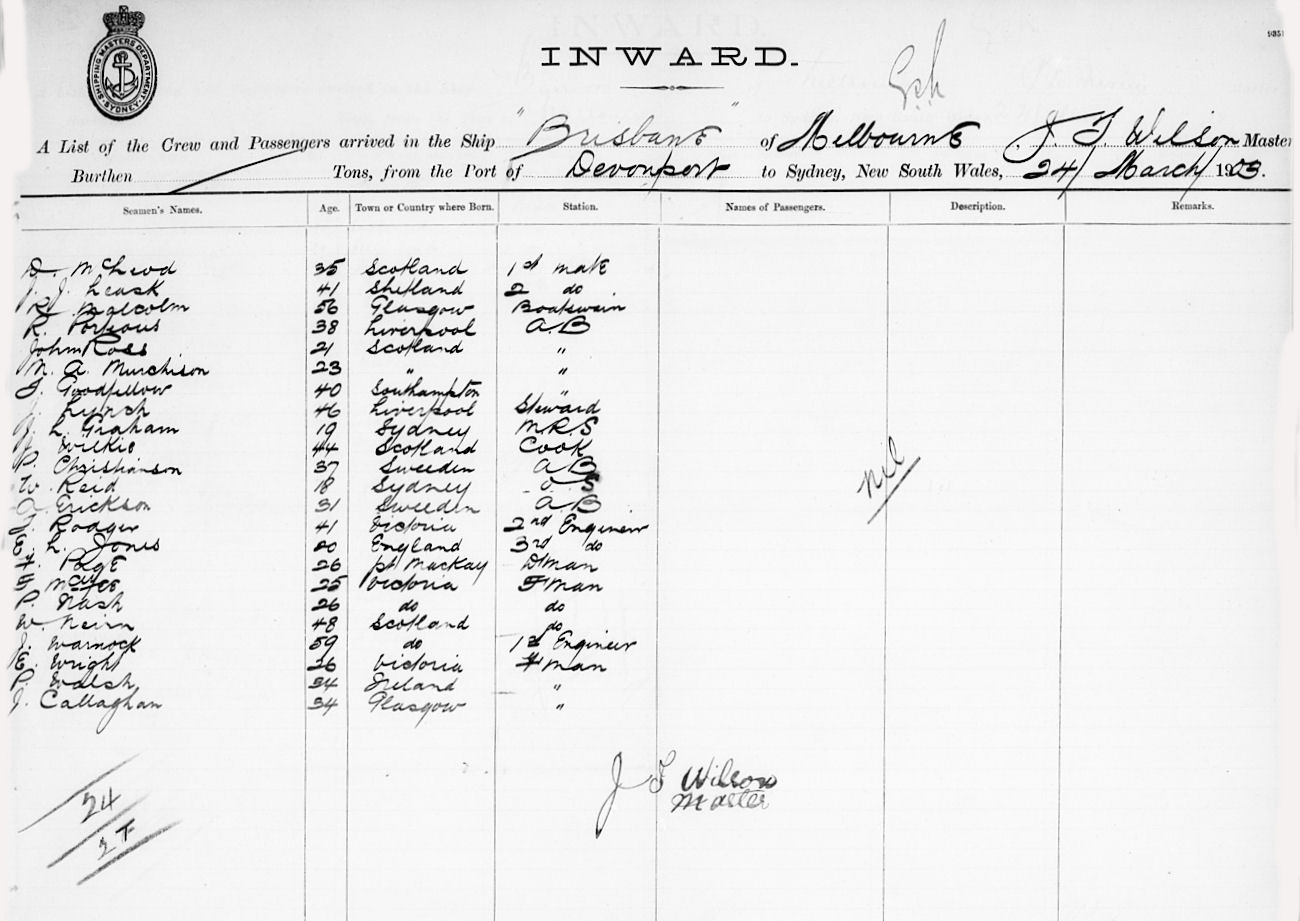 9351
INWARD.
SHIPPING MASTERS DEPARTMENT SYDNEY
A List of the Crew and Passengers arrived in the Ship "Brisbane" of Melbourne J. F. Wilson Master
Burthen Tons, from the Port of Devonport to Sydney, New South Wales, 24/ March/ 1903.
Seamen's Names. Age. Town or Country where Born. Station. Names of Passengers. Description. Remarks.
D. McLeod 35 Scotland 1st mate
J. J. Leask 41 Shetland 2 do
R. Malcolm 56 Glasgow Boatswain
R. Porteous 38 Liverpool A.B
John Ross 21 Scotland "
M. A. Murchison 23 " "
J. Goodfellow 40 Southampton "
J. Lynch 46 Liverpool Steward
J. L. Graham 19 Sydney M.R.S
J. Wilkie 44 Scotland Cook
P. Christianson 37 Sweeden A B
W. Reid 18 Sydney O.S
A. Erickson 31 Sweeden A B
J. Rodger 41 Victoria 2nd Engineer
E. L. Jones 20 England 3rd do
F. Page 26 pt Mackay D'man
F. 25 Victoria F'man
P. Nash 26 do do
W. Neirn 48 Scotland do
J. Warnock 59 do 1st Engineer
E. Wright 26 Victoria F'man
P. Walsh 34 Ireland "
J. Callaghan 34 Glasgow "
nil
J F Wilson
Master
24